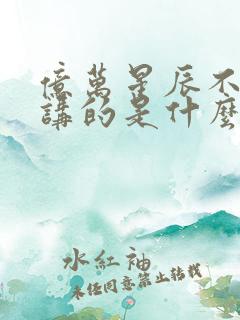 億萬星辰不
講的是什麼
水紅袖
未經同意禁止轉載